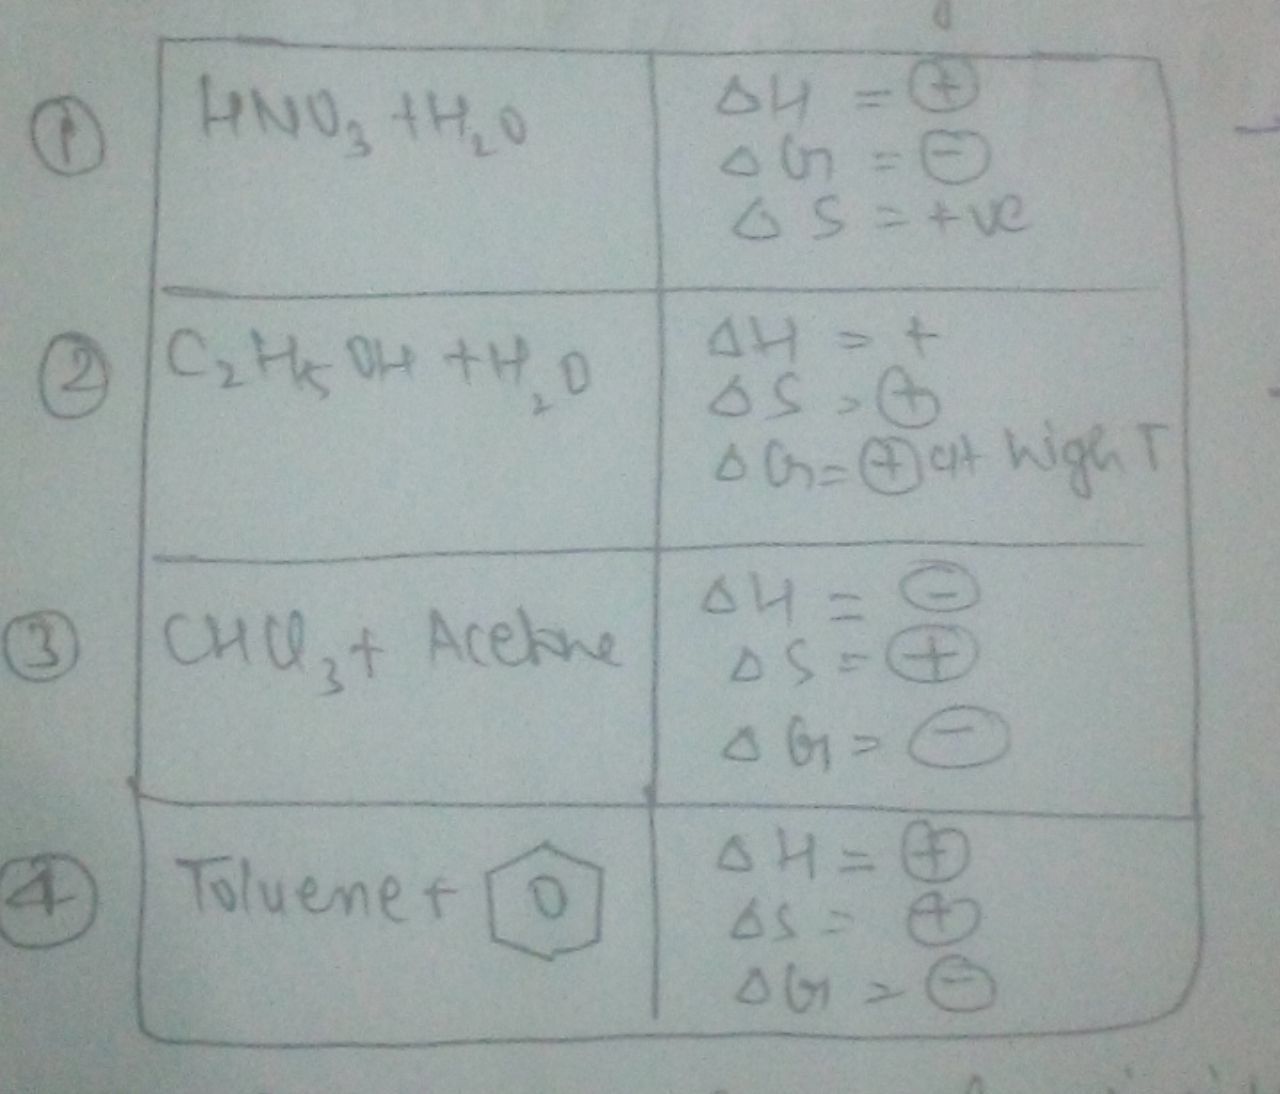 ① HNO₃ + H₂O
ΔH = ⊕
ΔG = ⊖
ΔS = +ve
② C₂H₅OH + H₂O
ΔH = +
ΔS = ⊕
ΔG = ⊕ at high T
③ CHCl₃ + Acetone
ΔH = ⊖
ΔS = ⊕
ΔG = ⊖
④ Toluene +
ΔH = ⊕
ΔS = ⊕
ΔG = ⊖